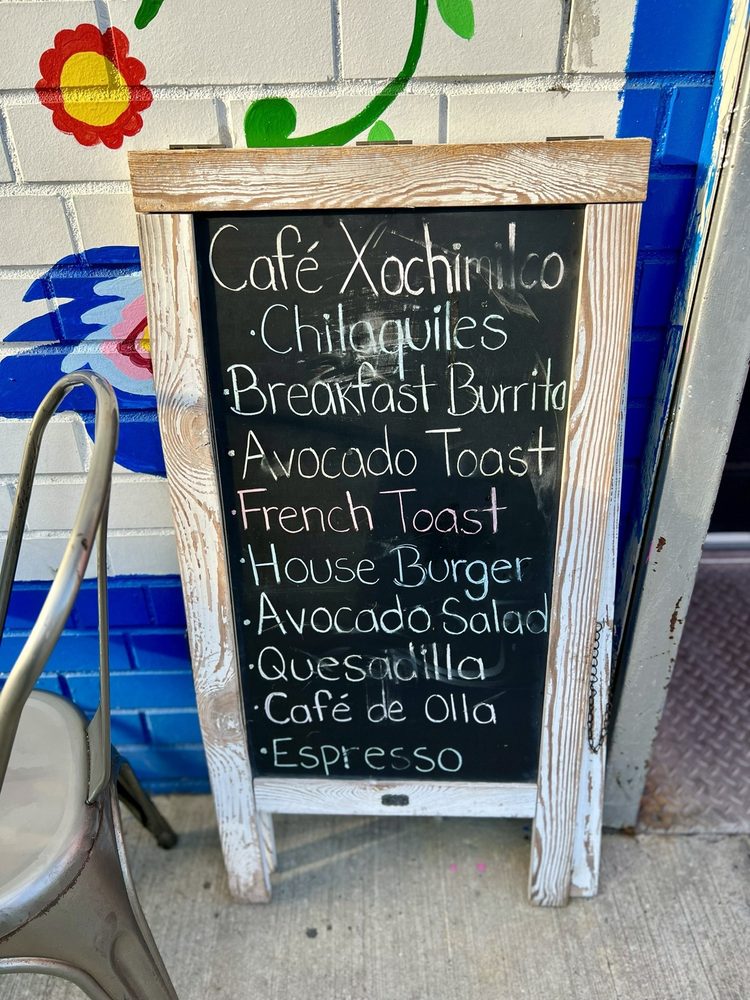 Café Xochimilco
·Chilaquiles
·Breakfast Burrito
·Avocado Toast
·French Toast
·House Burger
·Avocado Salad
·Quesadilla
·Café de Olla
·Espresso